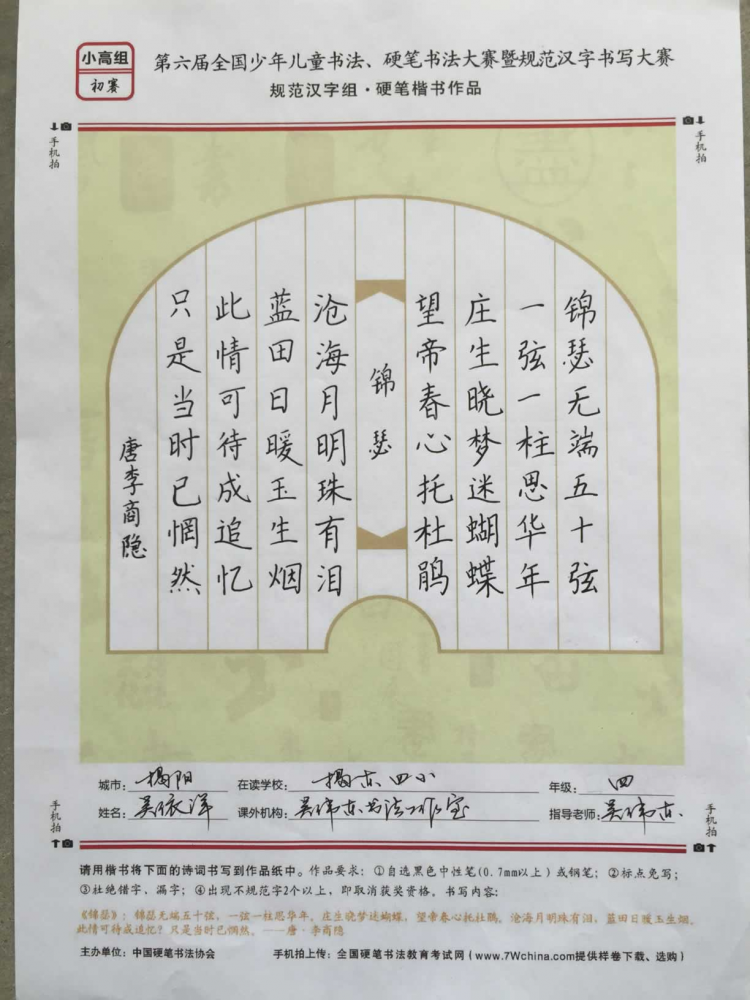 小高组
初赛
第六届全国少年儿童书法、硬笔书法大赛暨规范汉字书写大赛
规范汉字组·硬笔楷书作品
手机拍
手机拍
锦瑟无端五十弦
一弦一柱思华年
庄生晓梦迷蝴蝶
望帝春心托杜鹃
锦瑟
沧海月明珠有泪
蓝田日暖玉生烟
此情可待成追忆
只是当时已惘然
唐李商隐
城市：揭阳 在读学校：揭东四小 年级：四
姓名：吴依洋 课外机构：吴伟东书法工作室 指导老师：吴伟东
手机拍
手机拍
请用楷书将下面的诗词书写到作品纸中。作品要求：①自选黑色中性笔(0.7mm以上)或钢笔；②标点免写；
③杜绝错字、漏字；④出现不规范字2个以上，即取消获奖资格。书写内容：
《锦瑟》：锦瑟无端五十弦，一弦一柱思华年。庄生晓梦迷蝴蝶，望帝春心托杜鹃。沧海月明珠有泪，蓝田日暖玉生烟。
此情可待成追忆？只是当时已惘然。——唐·李商隐
主办单位：中国硬笔书法协会 手机拍上传：全国硬笔书法教育考试网(www.7Wchina.com提供样卷下载、选购)